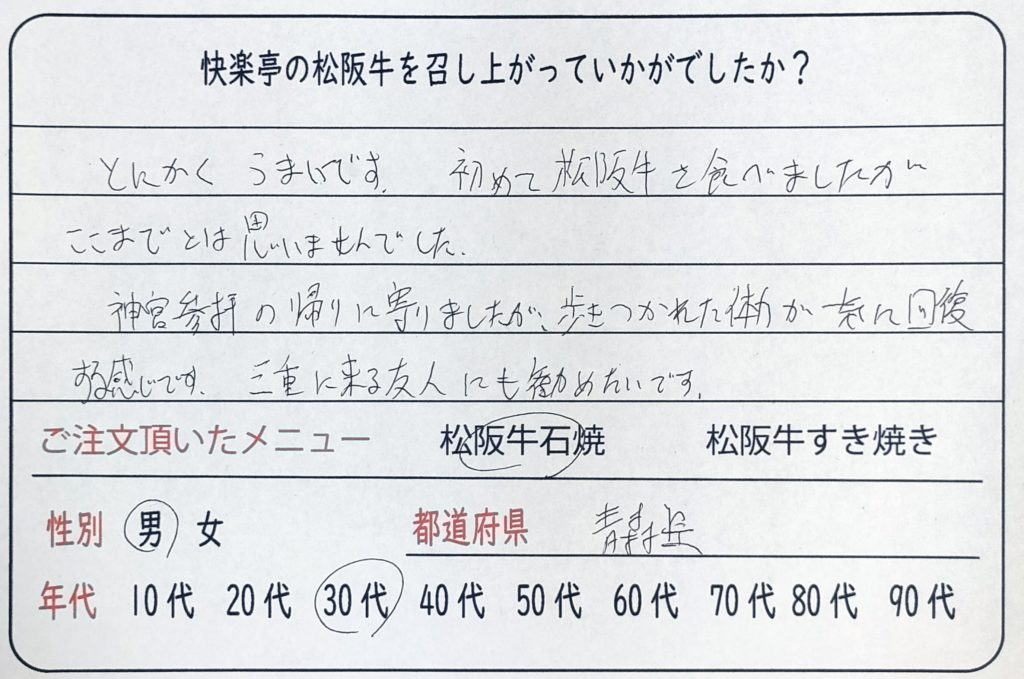 快楽亭の松阪牛を召し上がっていかがでしたか？
とにかく うまいです。 初めて松阪牛を食べましたが
ここまでとは思いませんでした。
神宮参拝の帰りに寄りましたが、歩きつかれた体力が一気に回復
する感じです。 三重に来る友人にも勧めたいです。
ご注文頂いたメニュー 松阪牛石焼 松阪牛すき焼き
性別 男 女 都道府県 青森県
年代 10代 20代 30代 40代 50代 60代 70代 80代 90代